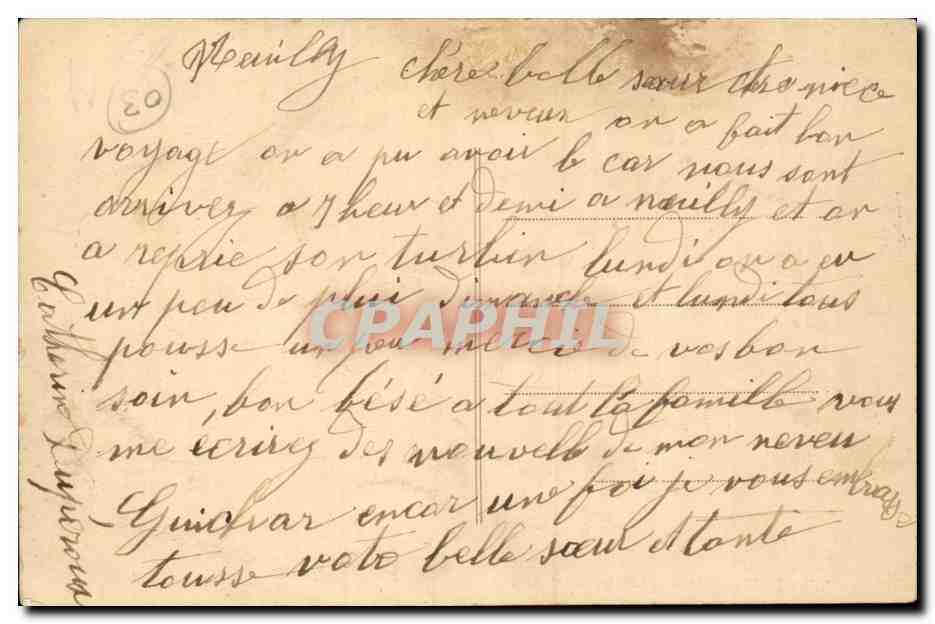 Neuilly
chère belle sœur chere niece
03
et neveux on a fait bon
voyage on a pu avoir le car nous sont
arrivez a 7 heur et demi a neuilly et on
a reprie son turbin lundi on a eu
un peu de plui dimanche et lundi tous
pousse un peu mercie de vos bon
soin, bon bésé a tout la famille vous
me ecrirez des nouvelle de mon neveu
encor une foi je vous embrasse
tousse voto belle sœur et tante
Catherine Dupéroux
CPAPHIL